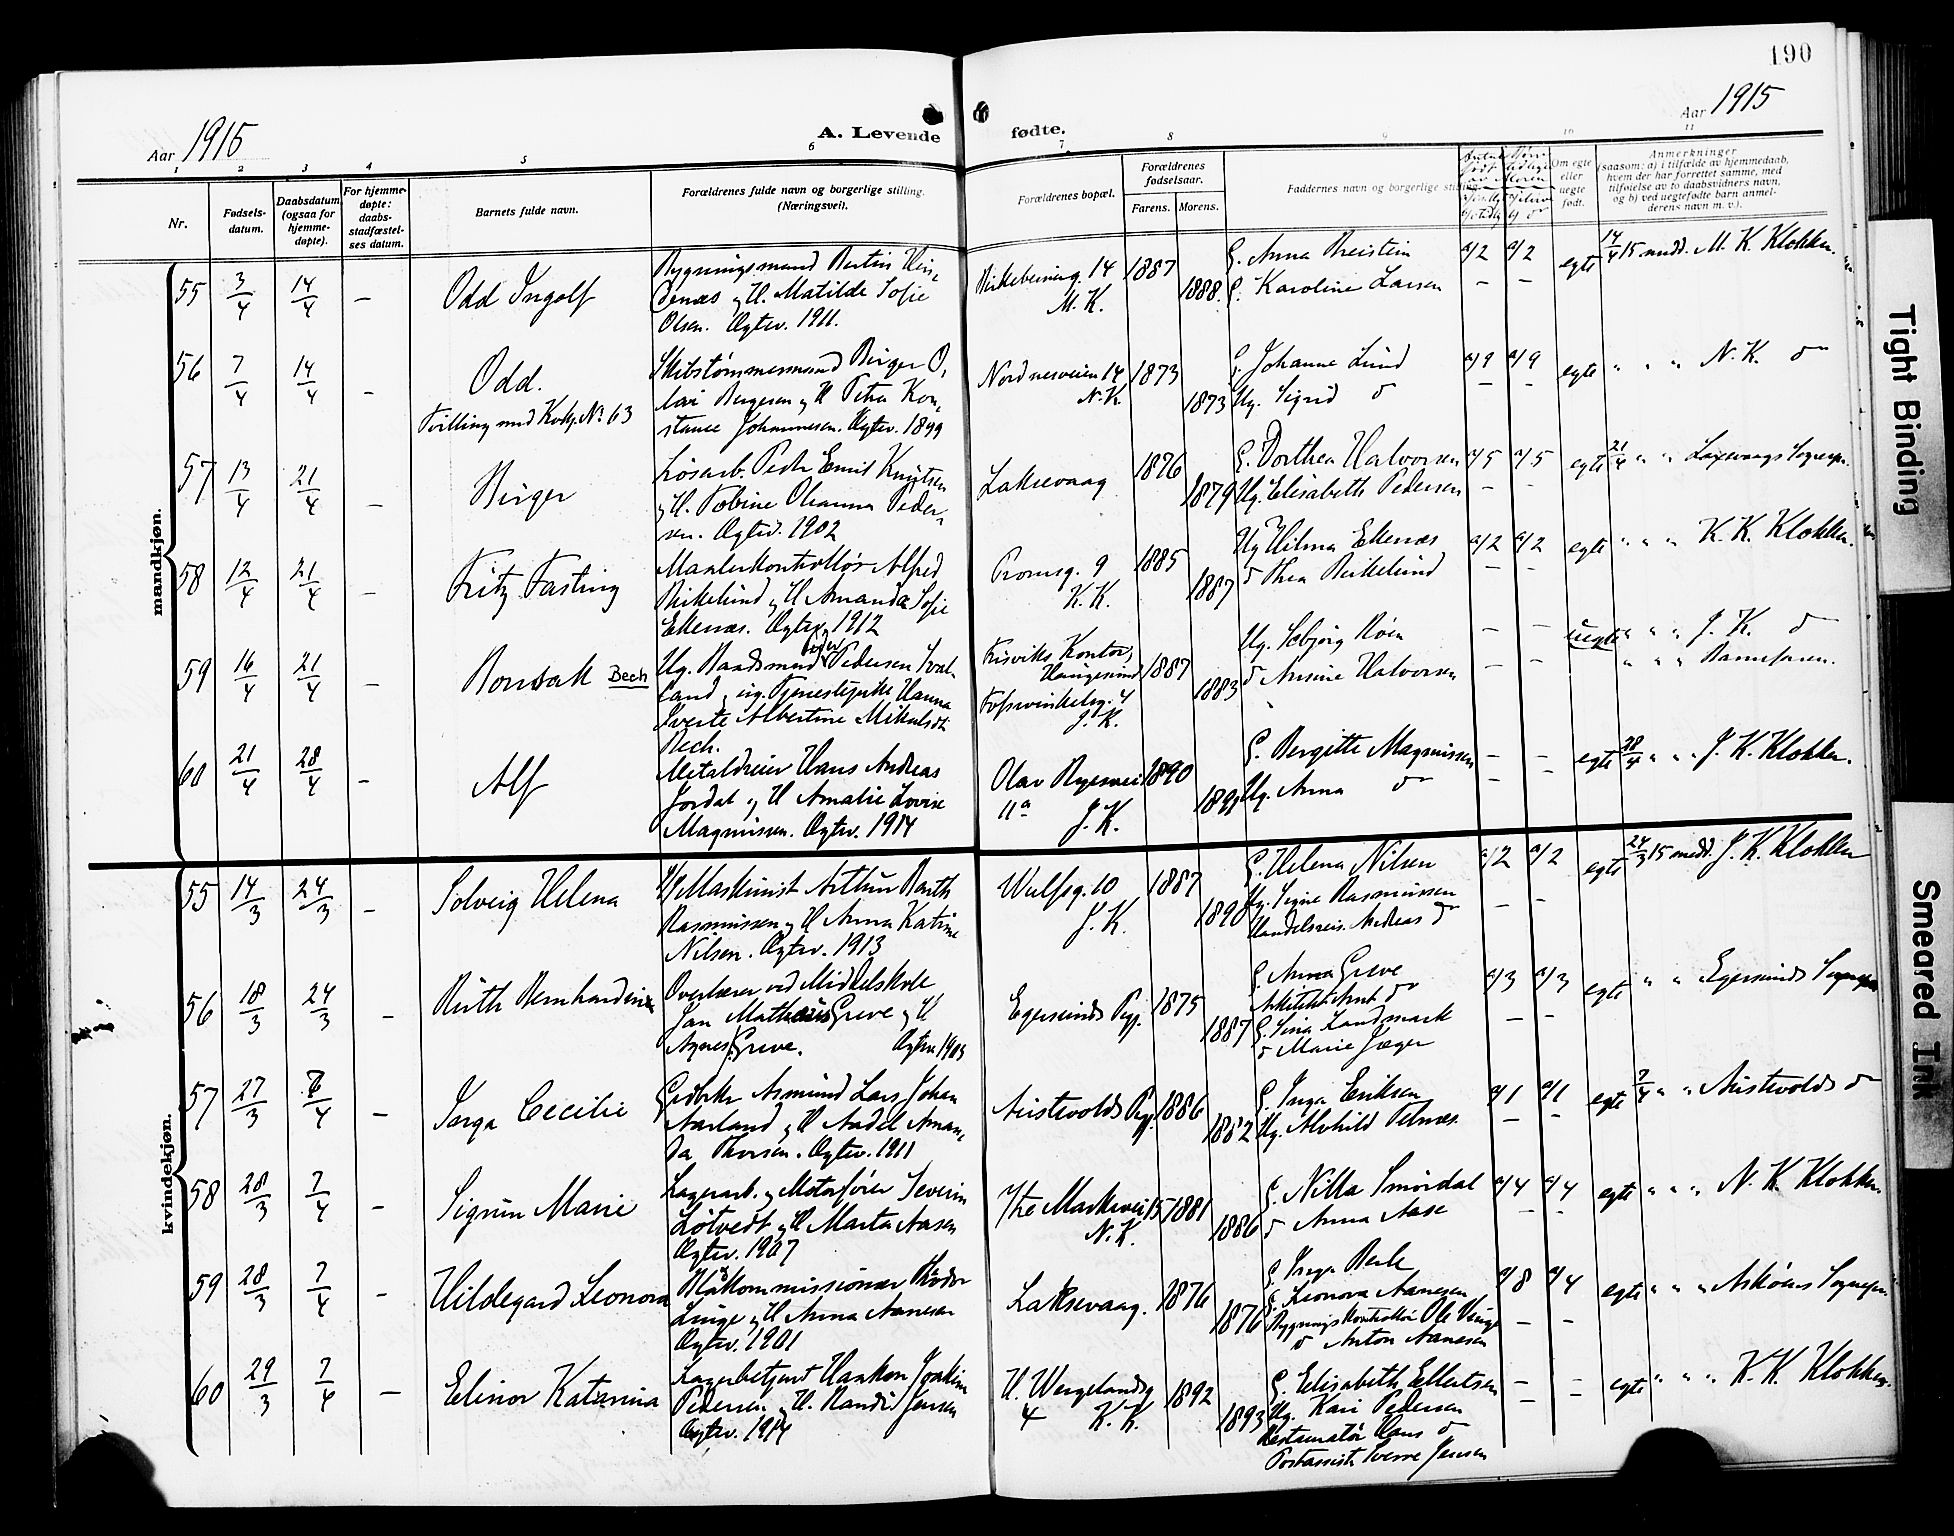 190
Aar 1915
A. Levende
fødte.
Aar 1915
1 2 3 4 5 6 7 8 9 10 11
Nr.
Fødsels-
datum.
Daabsdatum
(ogsaa for
hjemme-
døpte).
For hjemme-
døpte:
daabs-
stadfæstel-
ses datum.
Barnets fulde navn.
Forældrenes fulde navn og borgerlige stilling.
(Næringsvei).
Forældrenes bopæl.
Forældrenes
fødselsaar.
Farens. Morens.
Faddernes navn og borgerlige stilling.
Om egte
eller
uegte
født.
Anmerkninger
(saasom: a) i tilfælde av hjemmedaab,
hvem der har forrettet samme, med
tilføielse av to daabsvidners navn,
og b) ved uegtefødte barn anmel-
derens navn m. v.).
mandkjøn.
55 3/4 14/4 – Odd Ingolf
Bygningsmand Bertin Hin-
denæs og H. Matilde Sofie
Olsen. Ogtev. 1911.
Birkebeinerg. 14
M. K.
1887
1888
G. Anna Breistein
G. Karoline Larsen
a/2 a/2
egte
14/4 15 medd. M. K. Klokker.
56 7/4 14/4 – Odd.
Tvilling med Kvkj. No 63
Skibstømmermand Birger O-
lai Bergesen og H Petra Kon-
stance Johannesen. Ogtev. 1899
Nordnesveien 14
N. K.
1873
1873
G. Johanne Lund
Ug. Sigrid do
a/9 a/9
egte
" " " N. K. do
57 13/4 21/4 – Birger
Løsarb. Peder Emil Knutsen
og H. Tobine Oleanna Peder-
sen. Ogtev. 1902
Laksevaag
1876
1879
G. Dorthea Halvorsen
Ug. Elisabeth Pedersen
a/5 a/5
egte
21/4 " " Laxevaags Sognepr.
58 12/4 21/4 – Fritz Fasting
Maalerkontrollør Alfred
Birkelund og H Amanda Sofie
Ekenæs. Ogtev. 1912
Promsg. 9
K. K.
1885
1887
Ug Hilma Ekenæs
do Thea Birkelund
a/2 a/2
egte
" " " K. K. Klokker.
59 16/4 21/4 – Bonsak Bech
Ug. Baadsmand Peder Pedersen Sval-
land, ug. Tjenestepike Hanna
Sverte Albertine Mikalsdt
Bech.
Frisviks Kontor,
Haugesund
Fosswinkelsg. 4
J. K.
1887
1883
Ug. Sebjørg Røen
do Ansine Halvorsen
– –
uegte
" " " J. K. do
" " " Barnefaren.
60 21/4 28/4 – Alf
Metaldreier Hans Andreas
Jordal og H Amalie Lovise
Magnussen. Ogtev. 1914
Olav Ryesvei
11a
J. K.
1890
1891
G. Bergitte Magnussen
Ug. Anna do
– –
egte
28/4 " " J. K. Klokker.
kvindekjøn.
55 14/3 24/3 – Solveig Helena
Maskinist Arthur Barth
Rasmussen og H Anna Katrine
Nilsen. Ogtev. 1913
Wulfsg. 10
J. K.
1887
1890
G. Helena Nilsen
Ug. Signe Rasmussen
Handelsreis. Andreas do
a/2 a/2
egte
24/3 15 medd. J. K. Klokker
56 18/3 24/3 – Ruth Bernhardine
Overlærer ved Middelskole
Jan Mathæus Greve og H
Agnes Greve. Ogtev. 1903
Egersunds Pgj.
1875
1887
G. Anna Greve
Arkitekt Arnt do
G. Lina Landmark
do Marie Jæger
a/3 a/3
egte
" " Egersunds Sognepr.
57 27/3 7/4 – Inga Cecilie
Gedbrker Asmund Lars Johan
Aarland og H Aadel Aman-
da Thorsen. Ogtev. 1911
Austevolds Pgj.
1886
1882
G. Inga Eriksen
Ug. Alvhild Telnæs.
a/1 a/1
egte
7/4 " " Austevolds do
58 28/3 7/4 – Sigrun Marie
Lagerarb. og Motorfører Severin
Løtvedt og H Marta Aasen
Ogtev. 1907
Ytre Markevei 15
N. K.
1881
1886
G. Nilla Smørdal
do Anna Aase
a/4 a/4
egte
" " " N. K Klokker.
59 28/3 7/4 – Hildegard Leonora
Linge og H Anna Aanesen
Ogtev. 1901
Laksevaag.
1876
1876
G. Inga Berle
G. Leonora Aanesen
Bygningskontrollør Ole Vinge
do Anton Aanesen
a/8 a/4
egte
" " " Askøens Sognepr.
60 29/3 7/4 – Elinor Katarina
Lagerbetjent Haakon Joakim
Pedersen og H. Randi Jensen
Ogtev. 1914
H. Wergelandsg
4 K. K.
1892
1893
G. Elisabeth Ellertsen
Ug. Kari Pedersen
Restauratør Hans do
Postassist. Sverre Jensen
– –
egte
" " " K. K. Klokker.
Tight Binding
Smeared Ink